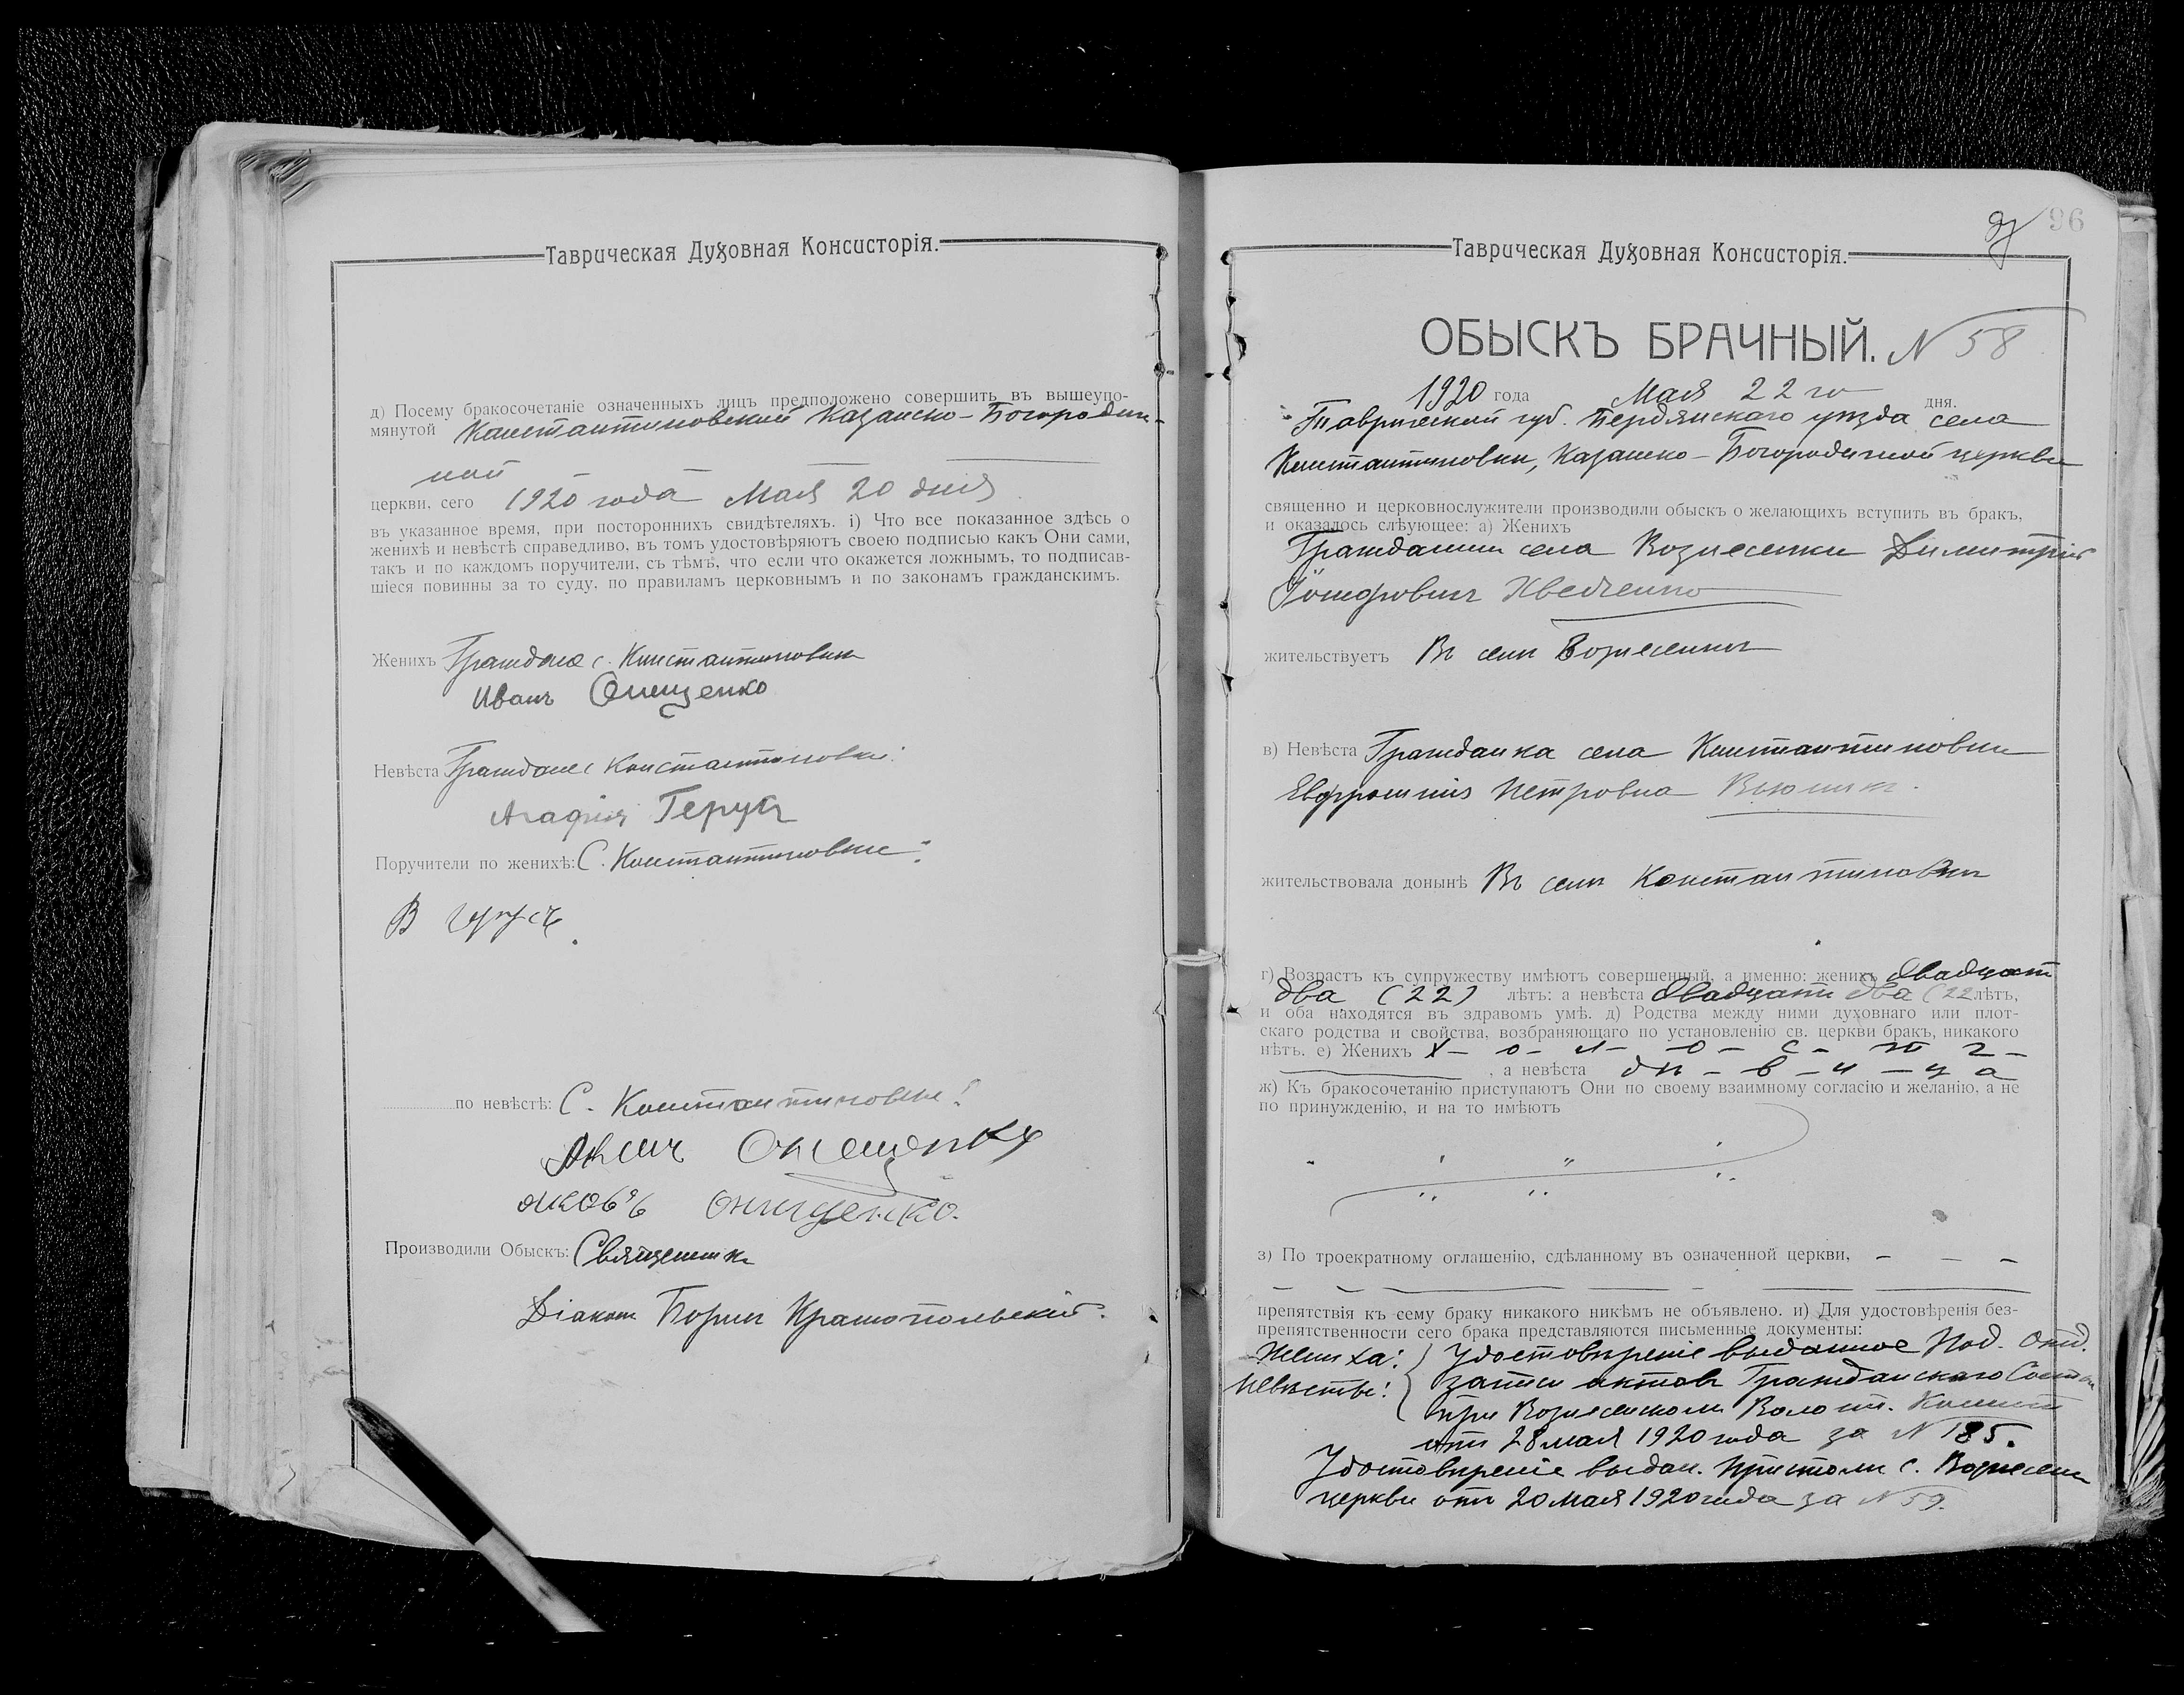 Таврическая Духовная Консисторія.
д) Посему бракосочетаніе означенныхъ лицъ предположено совершить въ вышеупо-
мянутой Константиновской Казанско-Богородич-
ной
церкви, сего 1920 года Мая 20 дня
въ указанное время, при постороннихъ свидѣтеляхъ. і) Что все показанное здѣсь о
женихѣ и невѣстѣ справедливо, въ томъ удостовѣряютъ своею подписью какъ Они сами,
такъ и по каждомъ поручители, съ тѣмъ, что если что окажется ложнымъ, то подписав-
шіеся повинны за то суду, по правиламъ церковнымъ и по законамъ гражданскимъ.
Женихъ с. Константиновки
Иванъ Онищенко
Невѣста Константиновки
Агафія Герус
Поручители по женихѣ: С. Константиновки:
В
по невѣстѣ: С. Константиновки:
Онещенко
Яковъ Онищенко.
Производили Обыскъ: Священник
Діакон Борис Крамопольскій.
Таврическая Духовная Консисторія.
96
ОБЫСКЪ БРАЧНЫЙ. N 58
1920 года Мая 22 го дня.
Таврической губ. Бердянскаго уѣзда села
Константиновки, Казанско-Богородичной церкви
священно и церковнослужители производили обыскъ о желающихъ вступить въ бракъ,
и оказалось слѣующее: а) Женихъ
Гражданин села Вознесенки Димитрій
Іосифович
жительствуетъ Въ селѣ Вознесенкѣ
в) Невѣста Гражданка села Константиновки
Евфросинія Петровна
жительствовала донынѣ Въ селѣ Константиновкѣ
г) Возрастъ къ супружеству имѣютъ совершенный, а именно: женихъ двадцать
два (22) лѣтъ: а невѣста двадцати два (22 лѣтъ,
и оба находятся въ здравомъ умѣ. д) Родства между ними духовнаго или плот-
скаго родства и свойства, возбраняющаго по установленію св. церкви бракъ, никакого
нѣтъ. е) Женихъ х - о - л - о - с - т г -
, а невѣста дѣ - в - и - ц а
ж) Къ бракосочетанію приступаютъ Они по своему взаимному согласію и желанію, а не
по принужденію, и на то имѣютъ
з) По троекратному оглашенію, сдѣланному въ означенной церкви, - - -
препятствія къ сему браку никакого никѣмъ не объявлено. и) Для удостовѣренія без-
препятственности сего брака представляются письменные документы:
Жениха: Удостовѣреніе выданное Под. Отд.
Невѣсты: записи актов Гражданскаго
при Вознесенском Волост. Комит
отъ 28 мая 1920 года за N 185.
Удостовѣреніе выдан. с. Вознесен
церкви отъ 20 мая 1920 года за N 59.